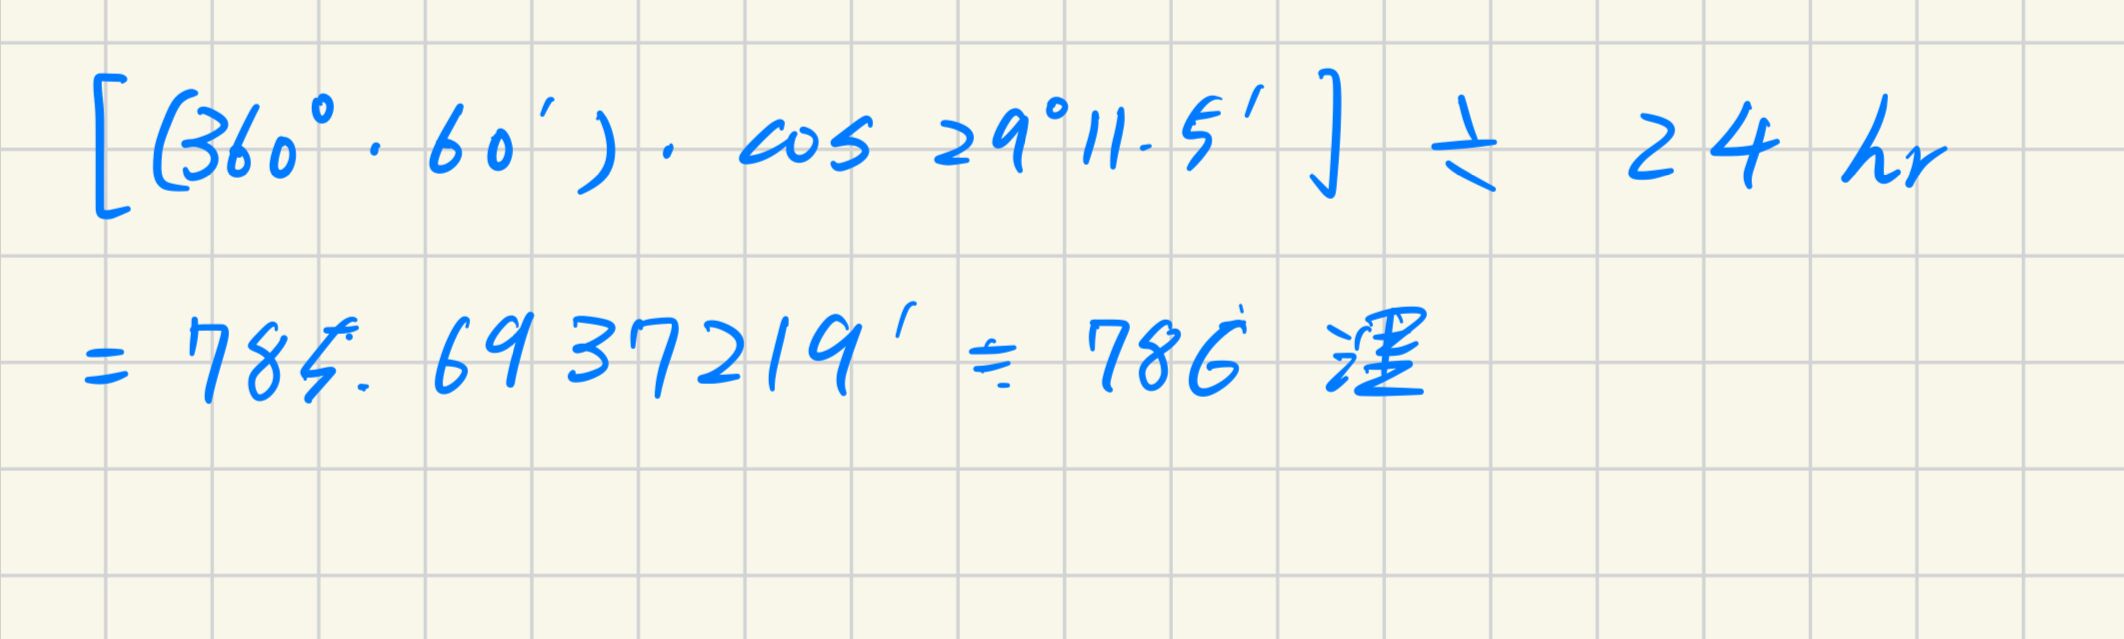 [(360°·60′)·cos 29°11.5′] ÷ 24 hr
= 785.6937219′ ≒ 786 浬